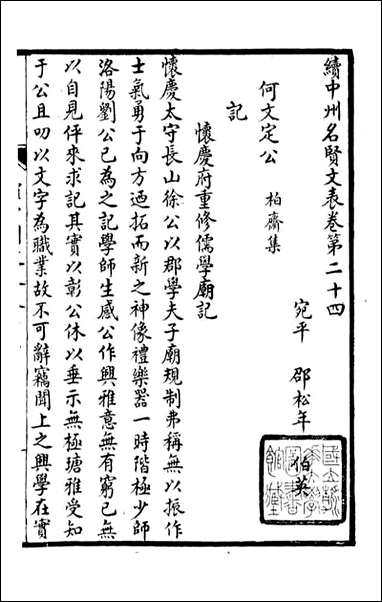 續中州名賢文表卷第二十四
宛平 邵松年 伯英
何文定公 柏齋集
記
懷慶府重修儒學廟記
懷慶太守長山徐公以郡學夫子廟規制弗稱無以振作
士氣勇于向方迺拓而新之神像禮樂器一時階極少師
洛陽劉公已為之記學師生感公作興雅意無有窮已無
以自見伻來求記其實以彰公休以垂示無極瑭雅受知
于公且叨以文字為職業故不可辭竊聞上之興學在實